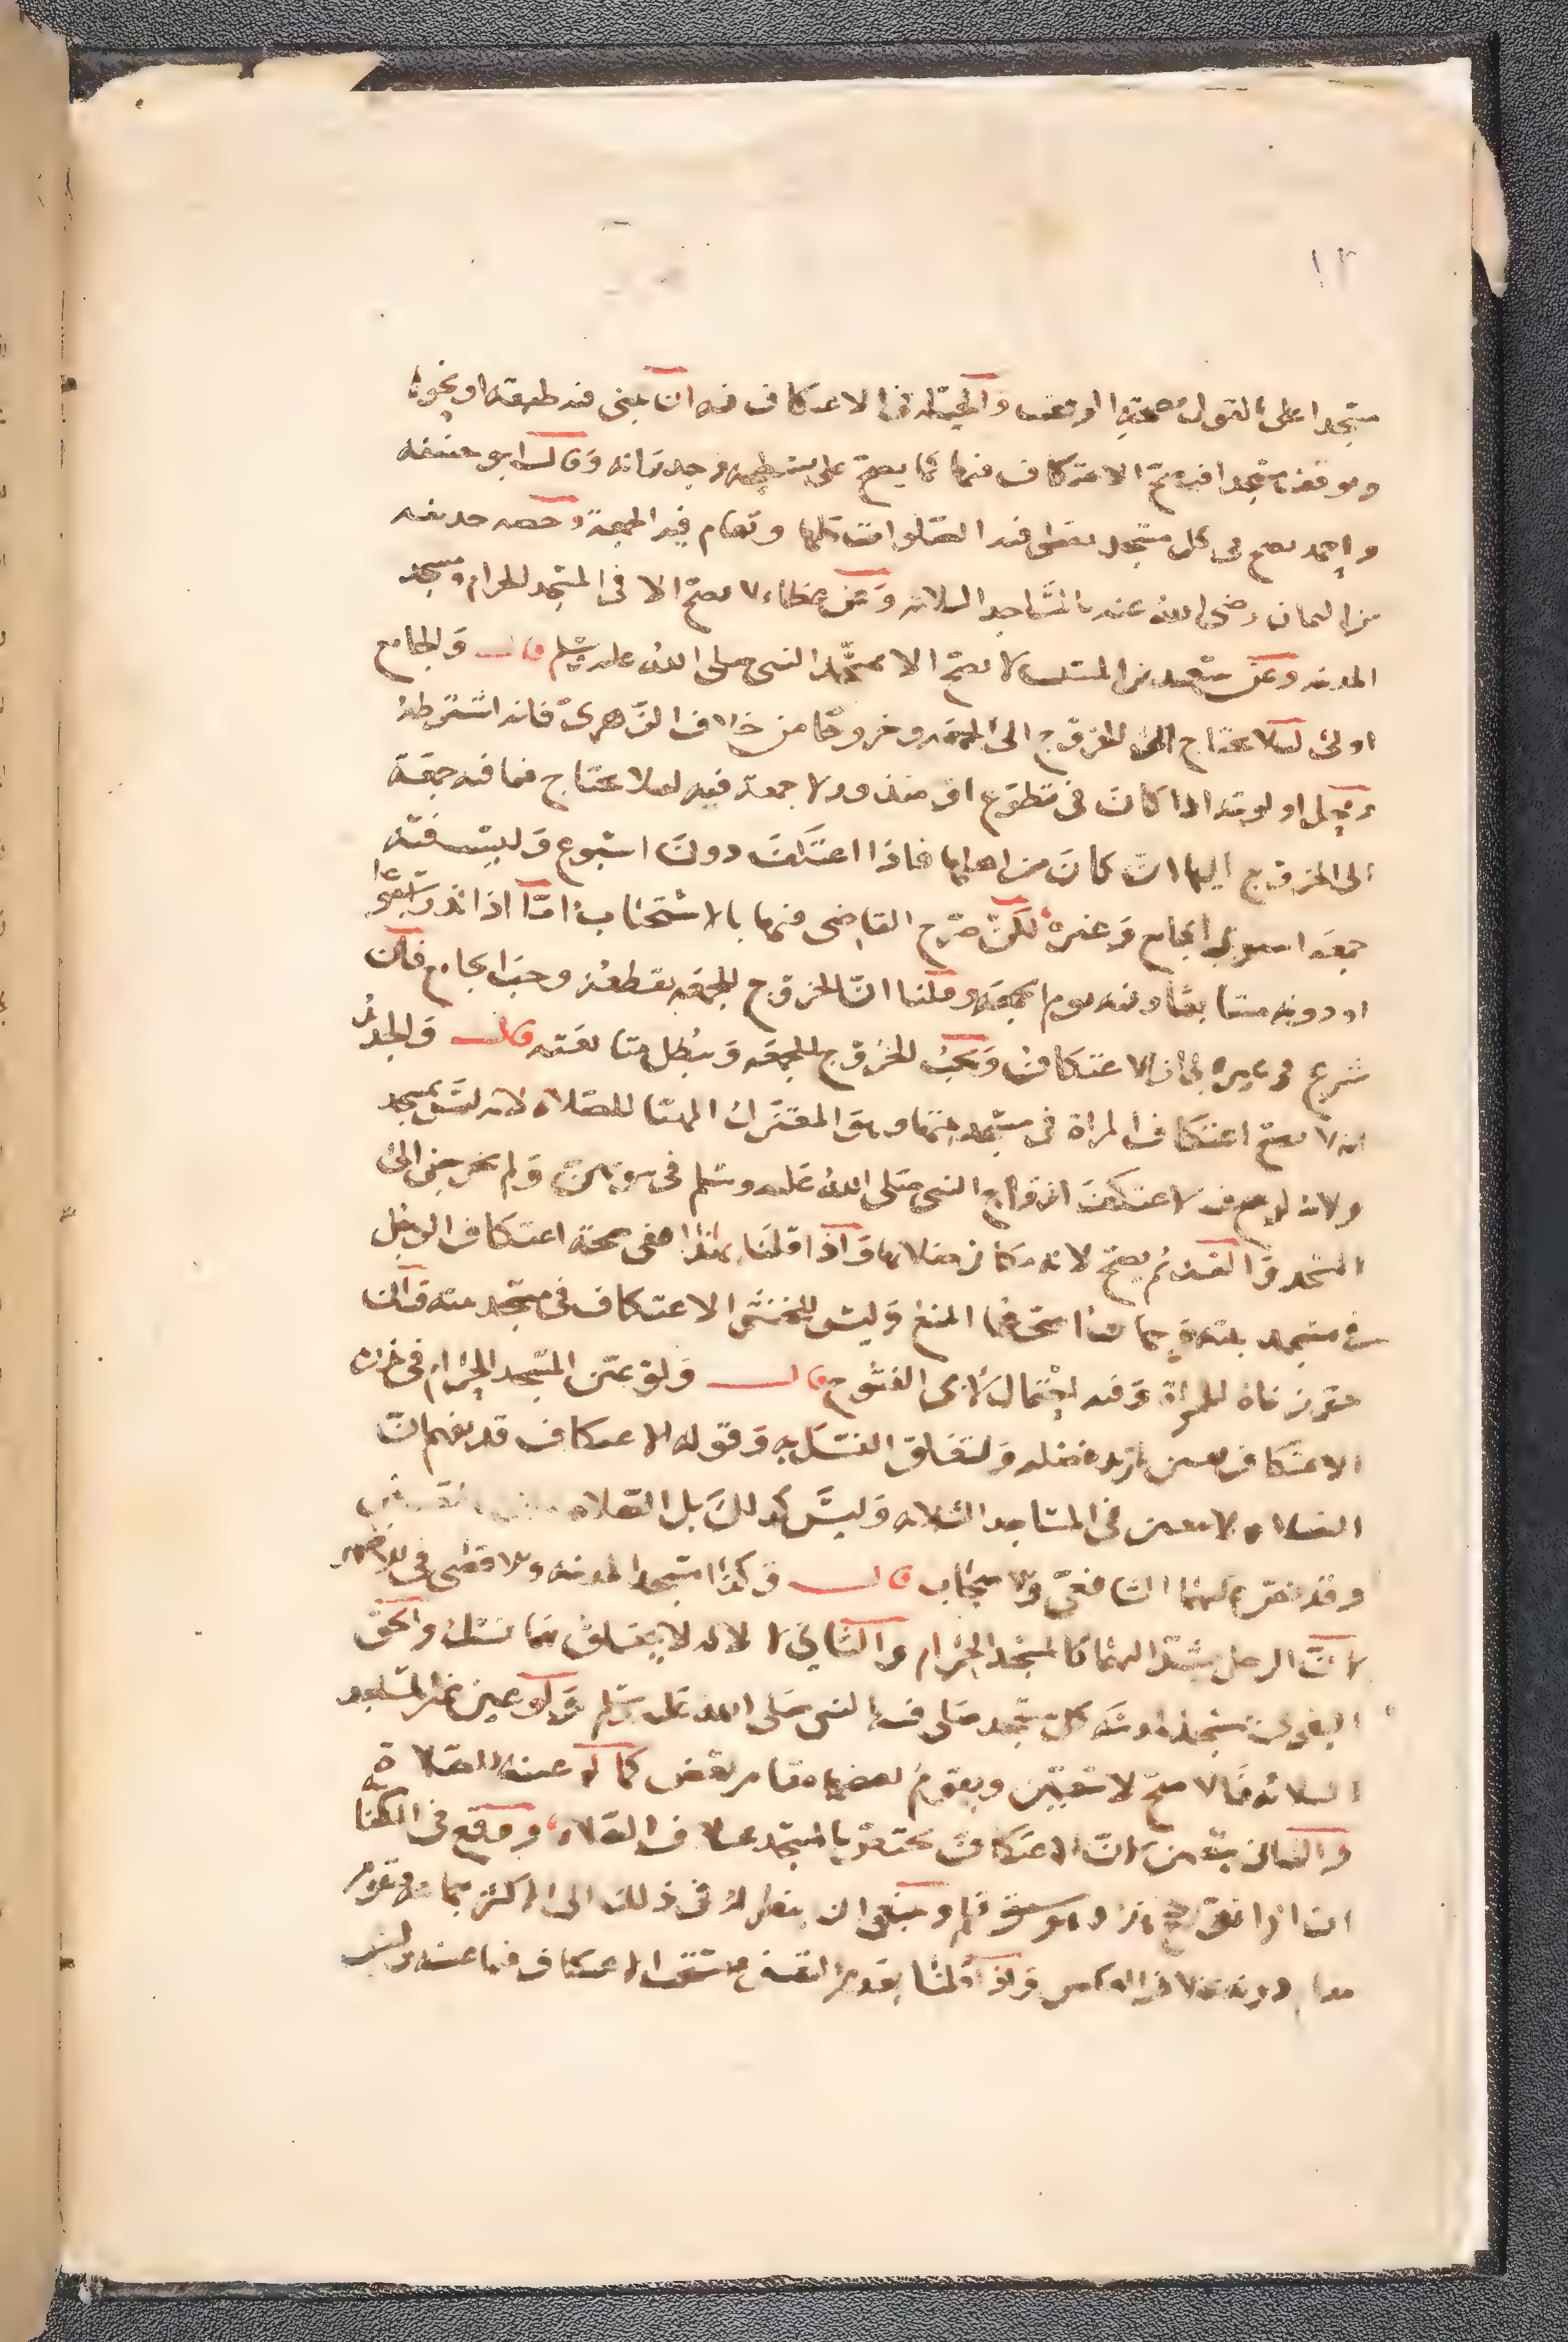 ١٣
مسجدا على القول بصحة الوقف والحيلة في الاعتكاف فيه ان يبنى فيه طبقة او نحوها
ويوقفها مسجدا فيصح الاعتكاف فيها كما يصح على سطحه وجدرانه وقال ابو حنيفة
واحمد يصح في كل مسجد يصلى فيه الصلوات كلها وتقام فيه الجمعة وخصه حذيفة
بن اليمان رضى الله عنه بالمساجد الثلاثة وعن عطاء لا يصح الا في المسجد الحرام ومسجد
المدينة وعن سعيد بن المسيب لا يصح الا بمسجد النبي صلى الله عليه وسلم قال والجامع
اولى لئلا يحتاج الى الخروج الى الجمعة وخروجا من خلاف الزهري فانه اشترطه
ومحل اولويته اذا كان في تطوع او منذور لا جمعة فيه لئلا يحتاج فيما فيه جمعة
الى الخروج اليها ان كان من اهلها فاذا اعتكف دون اسبوع وليس فيه
جمعة استوى الجامع وغيره لكن صرح القاضى فيها بالاستحباب اما اذا نذر اسبوعا
او دونه متتابعا وفيه يوم الجمعة وقلنا ان الخروج للجمعة يقطعه وجب الجامع فان
شرع في غيره الاعتكاف ويجب الخروج للجمعة ويبطل متابعته قال والجديد
انه لا يصح اعتكاف المراة في مسجد بيتها وهو المعتزل المهيا للصلاة لانه ليس بمسجد
ولانه لو صح فيه لاعتكف ازواج النبي صلى الله عليه وسلم في بيوتهن ولم يخرجن الى
المسجد والقديم يصح لانه مكان صلاتها واذا قلنا بهذا ففي صحة اعتكاف الرجل
في مسجد بيته وجهان اصحهما المنع وليس للخنثى الاعتكاف في مسجد بيته وان
جوزناه للمراة وفيه احتمال لابى الفتوح قال ولو عين المسجد الحرام في نذره
الاعتكاف تعين لمزيد فضله ولتعلق النسك به وقوله الاعتكاف قد يفهم ان
الصلاة لا تتعين في المساجد الثلاثة وليس كذلك بل الصلاة
وقد نص عليهما الشافعي والاصحاب قال وكذا مسجد المدينة والاقصى في الاظهر
لان الرحل يشد اليهما كالمسجد الحرام والثاني لا لانه لا يتعلق بهما نسك والحق
البغوى بمسجد المدينة كل مسجد صلى فيه النبي صلى الله عليه وسلم ولو عين غير المساجد
الثلاثة فالاصح لا يتعين ويقوم بعضها مقام بعض كما لو عينه للصلاة
والثاني يتعين لان الاعتكاف يختص بالمسجد بخلاف الصلاة ووقع في الكفاية
ان وينبغى ان ينظر في ذلك الى الاكثر
بخلاف العكس واذا قلنا بعدم التعين الاعتكاف فيما عينه وليس